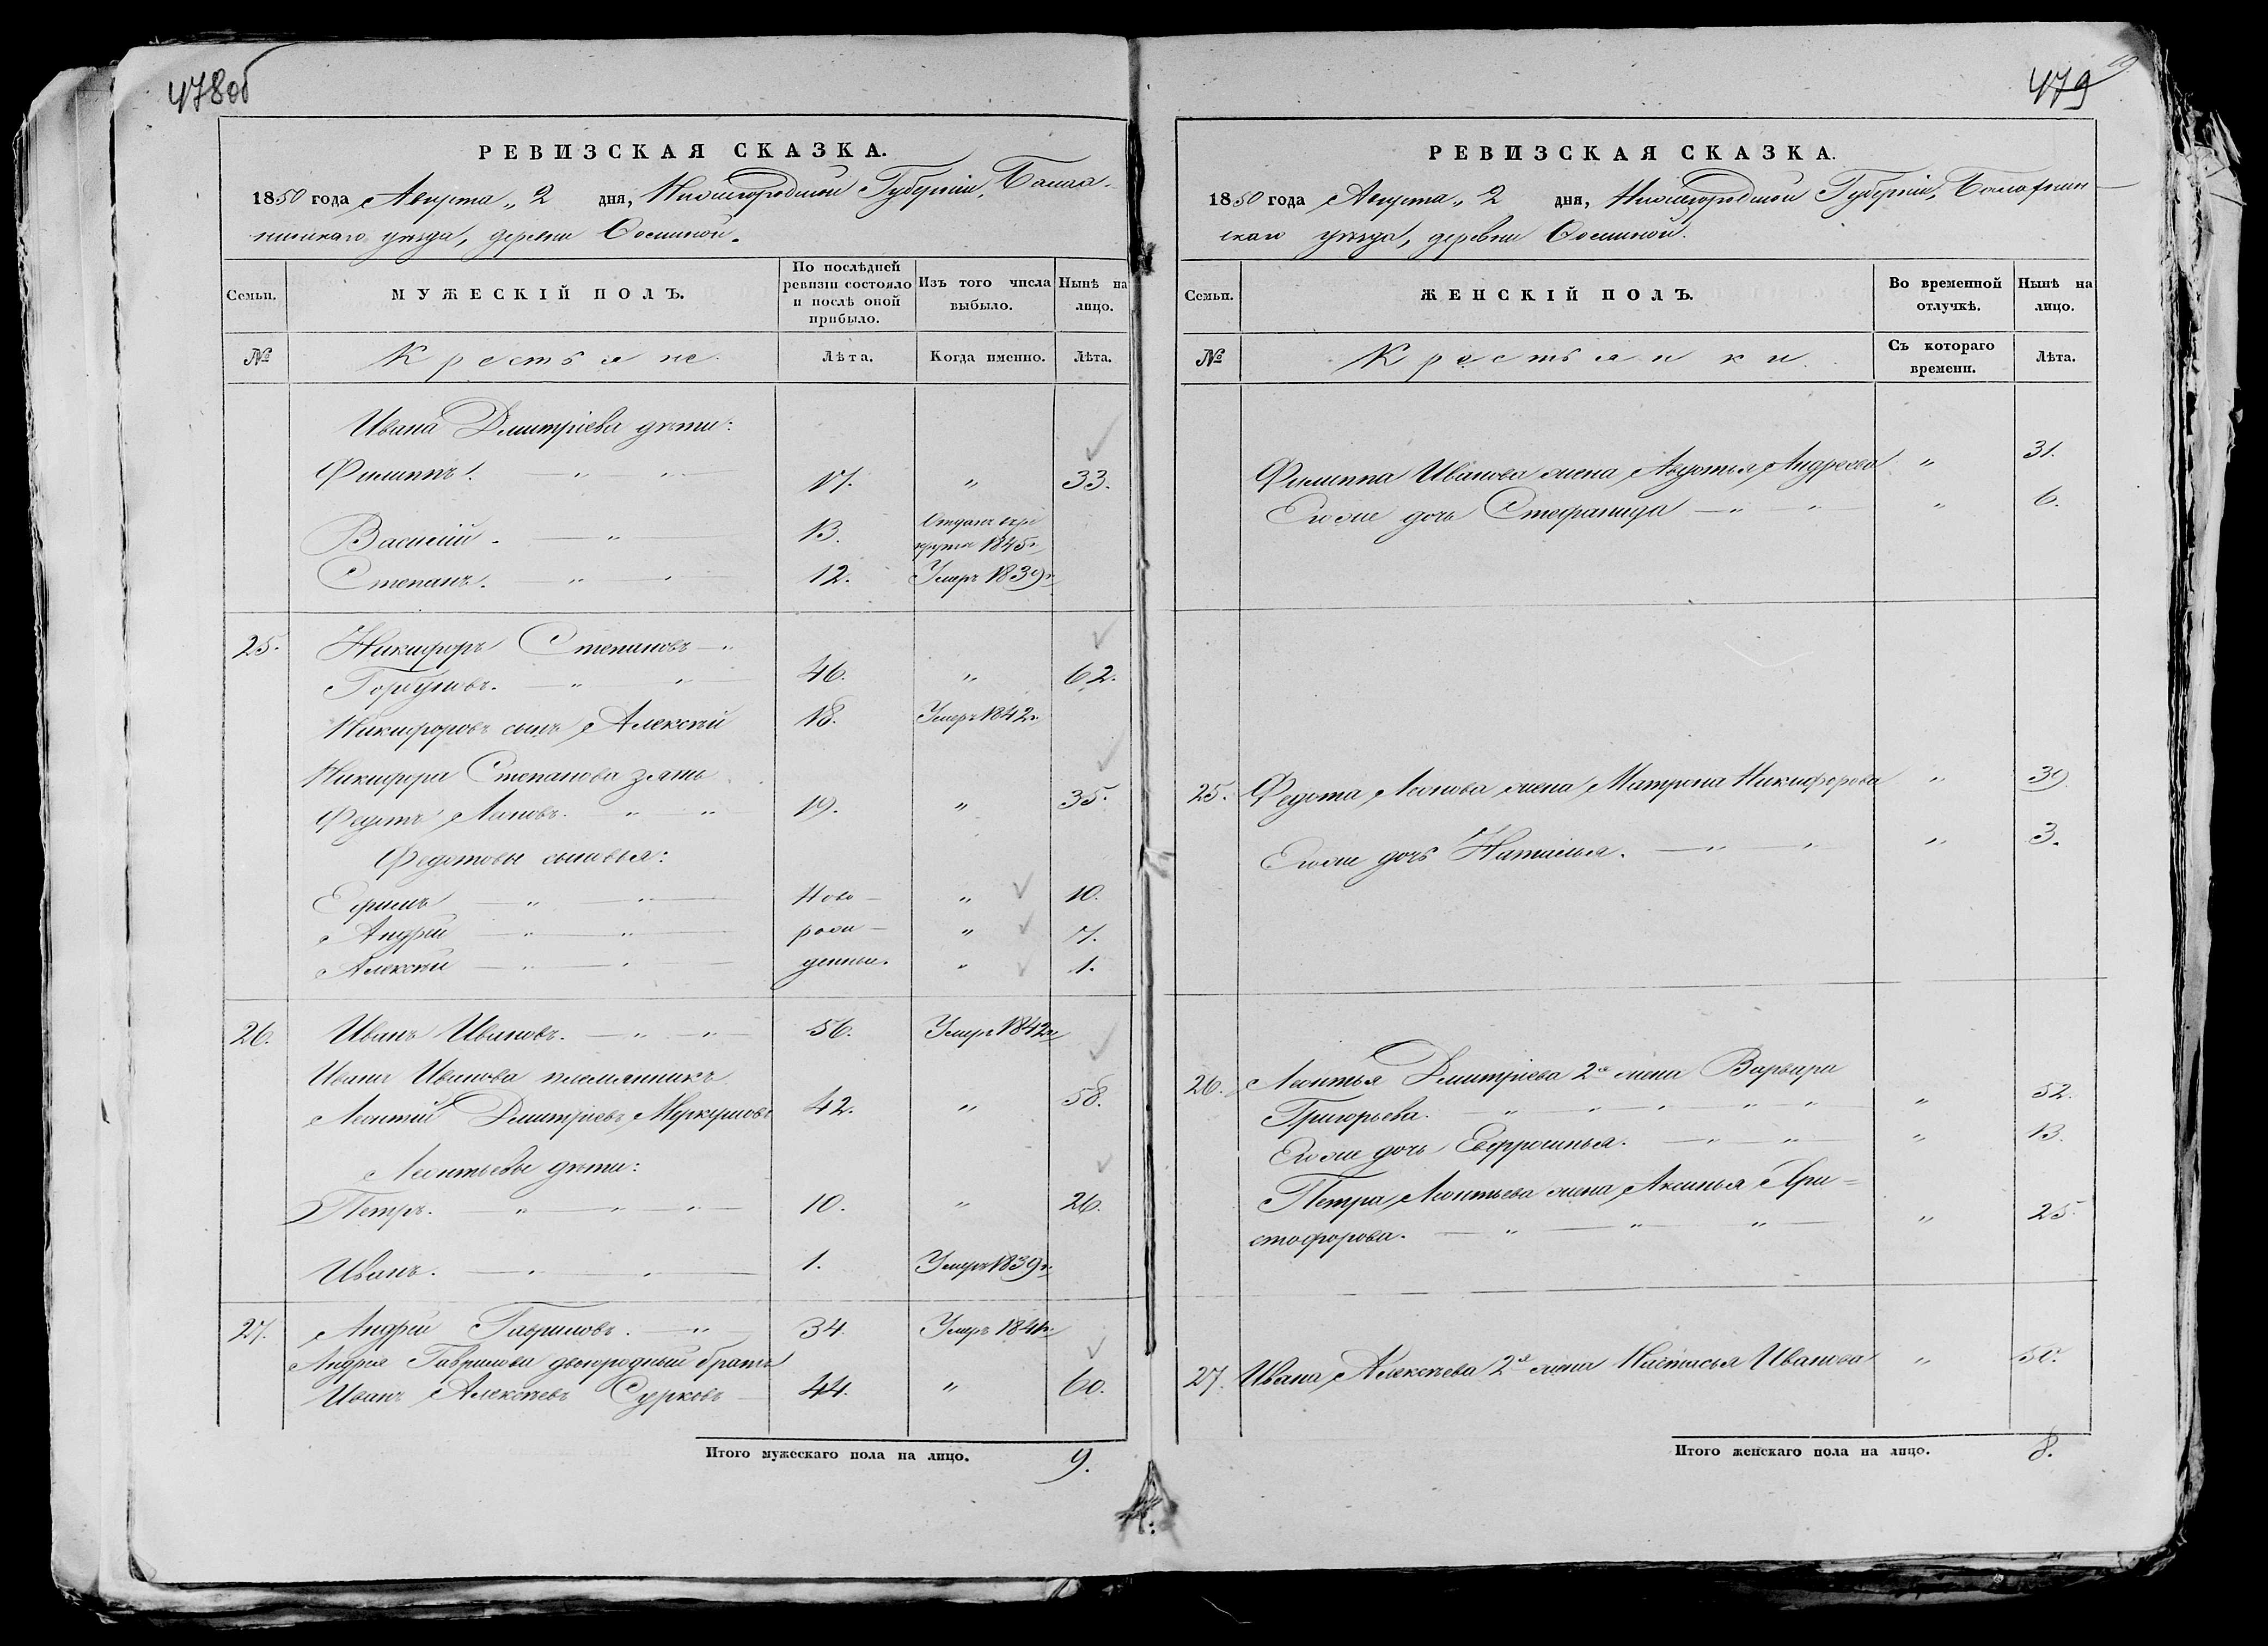 478об
РЕВИЗСКАЯ СКАЗКА.
1850 года Августа „ 2 дня, Нижегородской Губерніи, Балах-
нинскаго уѣзда, деревни Осминой.
Семьи. МУЖЕСКІЙ ПОЛЪ. По послѣдней ревизіи состояло и послѣ оной прибыло. Изъ того числа выбыло. Нынѣ на лицо.
№ Крестьяне. Лѣта. Когда именно. Лѣта.
Ивана Дмитріева дѣти:
Филиппъ. — „ — „ — 17. „ 33.
Василій. — „ — 13. Отданъ въ ре-
крута 1845г.
Степанъ. „ — „ — 12. Умеръ 1839г.
25. Никифоръ Степановъ — „
Горбуновъ. — „ — „ — 46. „ 62.
Никифоровъ сынъ Алексѣй 18. Умеръ 1842г.
Никифора Степанова зять
Федотъ Леоновъ. — „ — „ 19. „ 35.
Федотовы сыновья:
Ефимъ — „ — „ — Ново- „ 10.
Андрей — „ — „ — рож- „ 7.
Алексѣй — „ — „ — денные. „ 1.
26. Иванъ Ивановъ. — „ — „ — 56. Умеръ 1842г.
Ивана Иванова племянникъ
Леонтій Дмитріевъ Меркушовъ 42. „ 58.
Леонтьевы дѣти:
Петръ. — „ — „ — „ — 10. „ 26.
Иванъ. — „ — „ — 1. Умеръ 1839г.
27. Андрей Гавриловъ. — „ — 34. Умеръ 1841г.
Андрея Гаврилова двоюродный братъ
Иванъ Алексѣевъ Сурковъ — 44. „ 60.
Итого мужескаго пола на лицо. 9.
479
РЕВИЗСКАЯ СКАЗКА.
1850 года Августа „ 2 дня, Нижегородской Губерніи, Балахнин-
скаго уѣзда, деревни Осминой.
Семьи. ЖЕНСКІЙ ПОЛЪ. Во временной отлучкѣ. Нынѣ на лицо.
№ Крестьянки. Съ котораго времени. Лѣта.
Филиппа Иванова жена Авдотья Андреева „ 31.
Егоже дочь Степанида — „ — „ — „ 6.
25. Федота Леонова жена Матрона Никифорова „ 39
Егоже дочь Наталья. — „ — „ — „ 3.
26. Леонтья Дмитріева 2я жена Варвара
Григорьева. — „ — „ — „ — „ — „ „ 52.
Егоже дочь Евфросинья. — „ — „ — „ 13.
Петра Леонтьева жена Аксинья Хри-
стофорова. — „ — „ — „ — „ 25.
27. Ивана Алексѣева 2я жена Настасья Иванова „ 50.
Итого женскаго пола на лицо. 8.